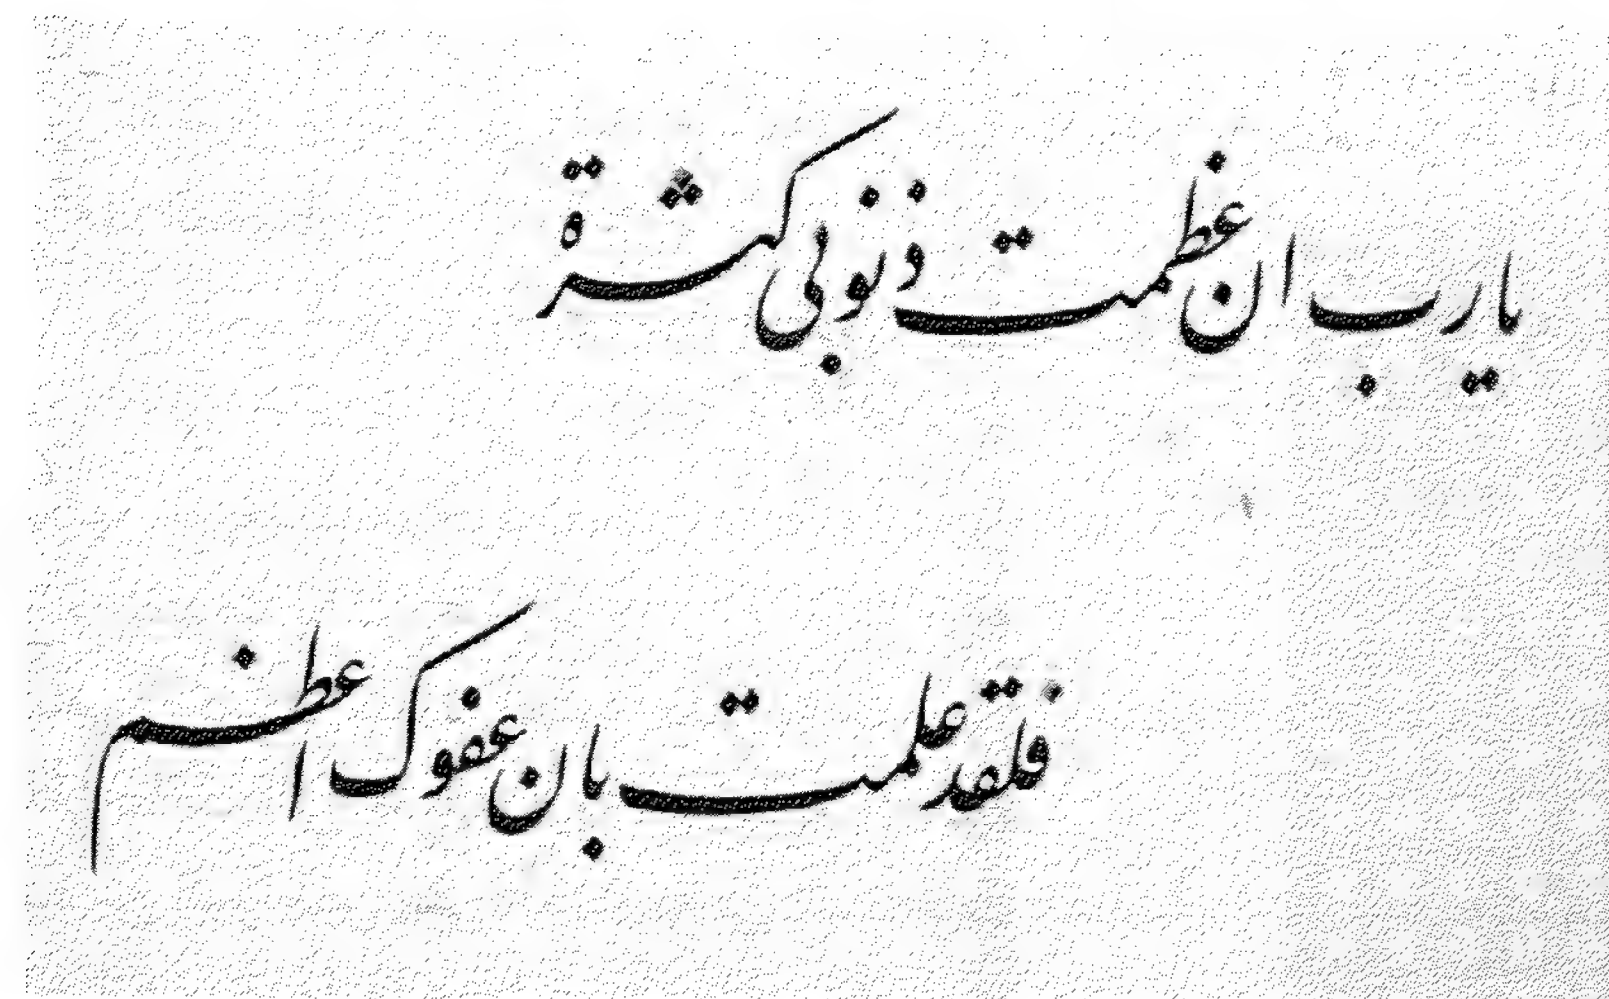 يا رب ان عظمت ذنوبي كثرة
فلقد علمت بان عفوك اعظم